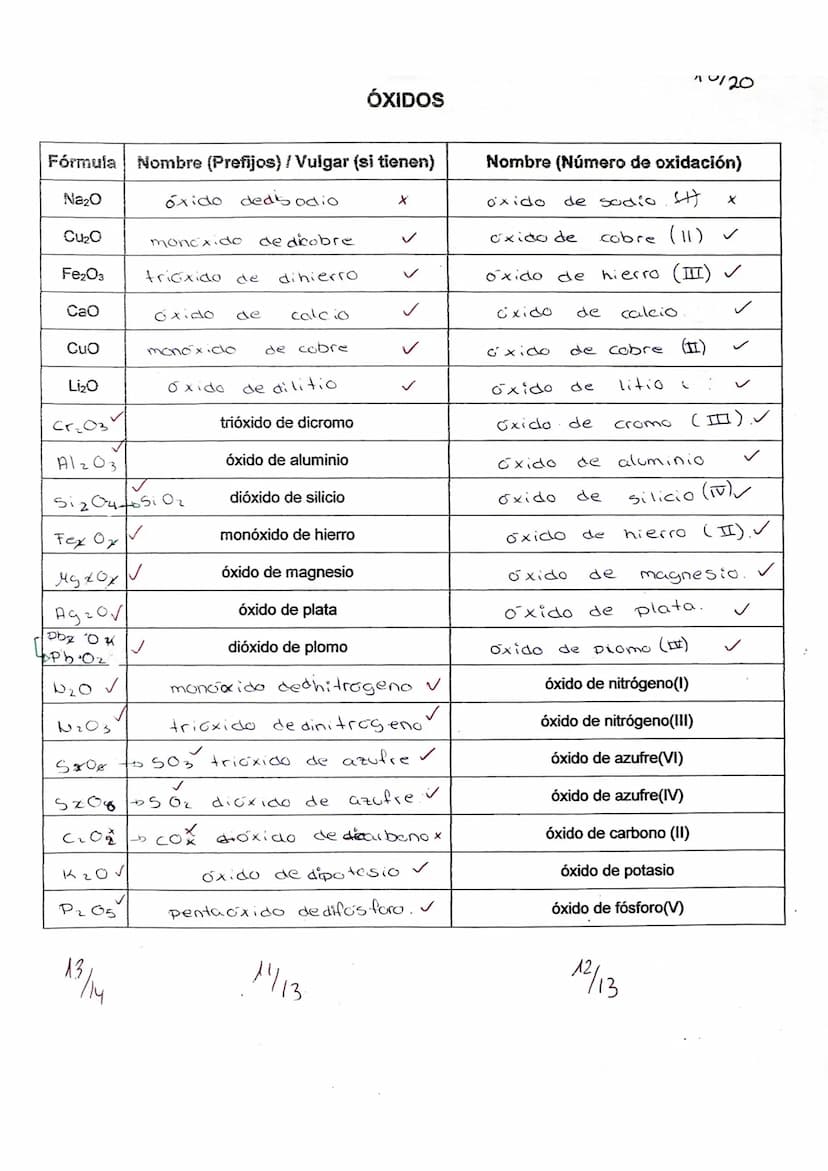 /20
ÓXIDOS
Fórmula Nombre (Prefijos) / Vulgar (si tienen) Nombre (Número de oxidación)
Na₂O óxido dedisodio x óxido de sodio x
Cu₂O monóxido de dicobre ✓ óxido de cobre (II) ✓
Fe₂O₃ trióxido de dihierro ✓ óxido de hierro (III) ✓
CaO óxido de calcio ✓ óxido de calcio. ✓
CuO monóxido de cobre ✓ óxido de cobre (II) ✓
Li₂O óxido de dilitio ✓ óxido de litio ✓
Cr₂O₃ ✓ trióxido de dicromo óxido de cromo (III). ✓
Al₂O₃ ✓ óxido de aluminio óxido de aluminio ✓
Si₂O₄ → SiO₂ ✓ dióxido de silicio óxido de silicio (IV) ✓
Fe₂O₂ ✓ monóxido de hierro óxido de hierro (II). ✓
Mg₂O₂ ✓ óxido de magnesio óxido de magnesio. ✓
Ag₂O ✓ óxido de plata óxido de plata. ✓
Pb₂O₄
→ PbO₂ ✓ dióxido de plomo óxido de plomo (IV) ✓
N₂O ✓ monóxido dedinitrógeno ✓ óxido de nitrógeno(I)
N₂O₃ ✓ trióxido de dinitrógeno ✓ óxido de nitrógeno(III)
S₂O₆ → SO₃ ✓ trióxido de azufre ✓ óxido de azufre(VI)
S₂O → SO₂ ✓ dióxido de azufre ✓ óxido de azufre(IV)
C₂O₂ → CO x óxido de carbono x óxido de carbono (II)
K₂O ✓ óxido de dipotasio ✓ óxido de potasio
P₂O₅ ✓ pentaóxido dedifósforo. ✓ óxido de fósforo(V)
13/14 11/13 12/13